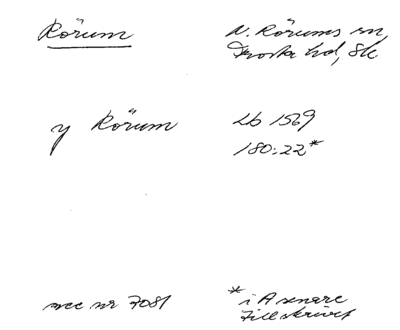 Rörum
N. Rörums sn,
Frosta hd, Sk
y Rörum
Lb 1569
180:22*
acc nr 7081
* i A senare
tillskrivet